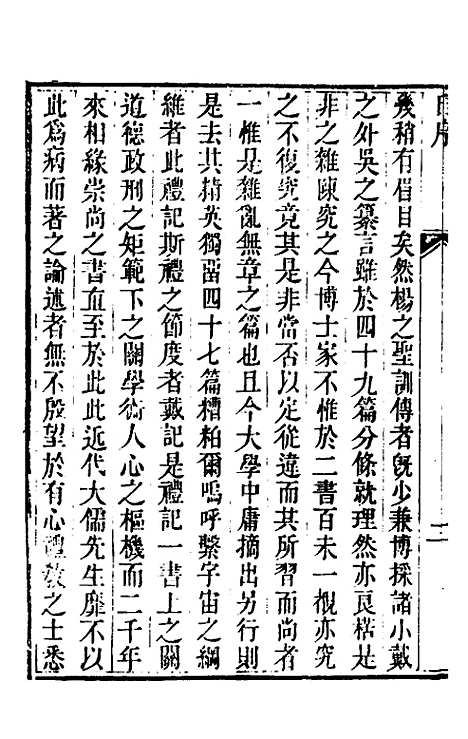 自序
二
幾稍有眉目矣然楊之聖訓傳者旣少兼博採諸小戴
之外吳之纂言雖於四十九篇分條就理然亦良楛是
非之雜陳究之今博士家不惟於二書百未一覩亦究
之不復究竟其是非當否以定從違而其所習而尚者
一惟是雜亂無章之篇也且今大學中庸摘出另行則
是去其精英獨畱四十七篇糟粕爾嗚呼繄宇宙之綱
維者此禮記斯禮之節度者戴記是禮記一書上之關
道德政刑之矩範下之關學術人心之樞機而二千年
來相緣崇尚之書直至於此此近代大儒先生靡不以
此爲病而著之論述者無不殷望於有心禮敎之士悉